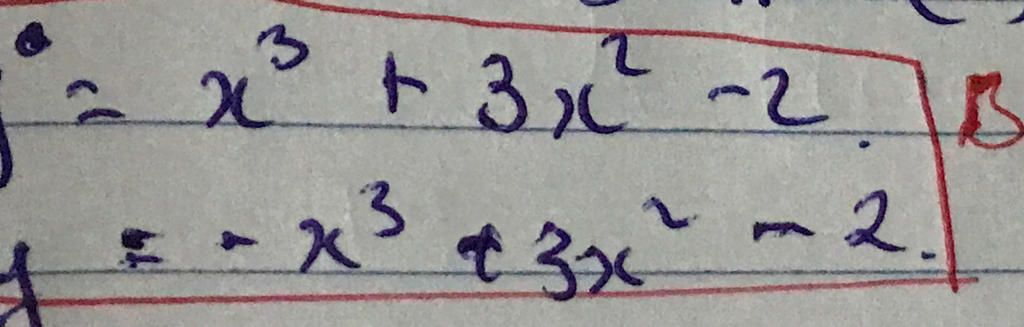 y = x³ + 3x² - 2.
B
y = -x³ + 3x² - 2.